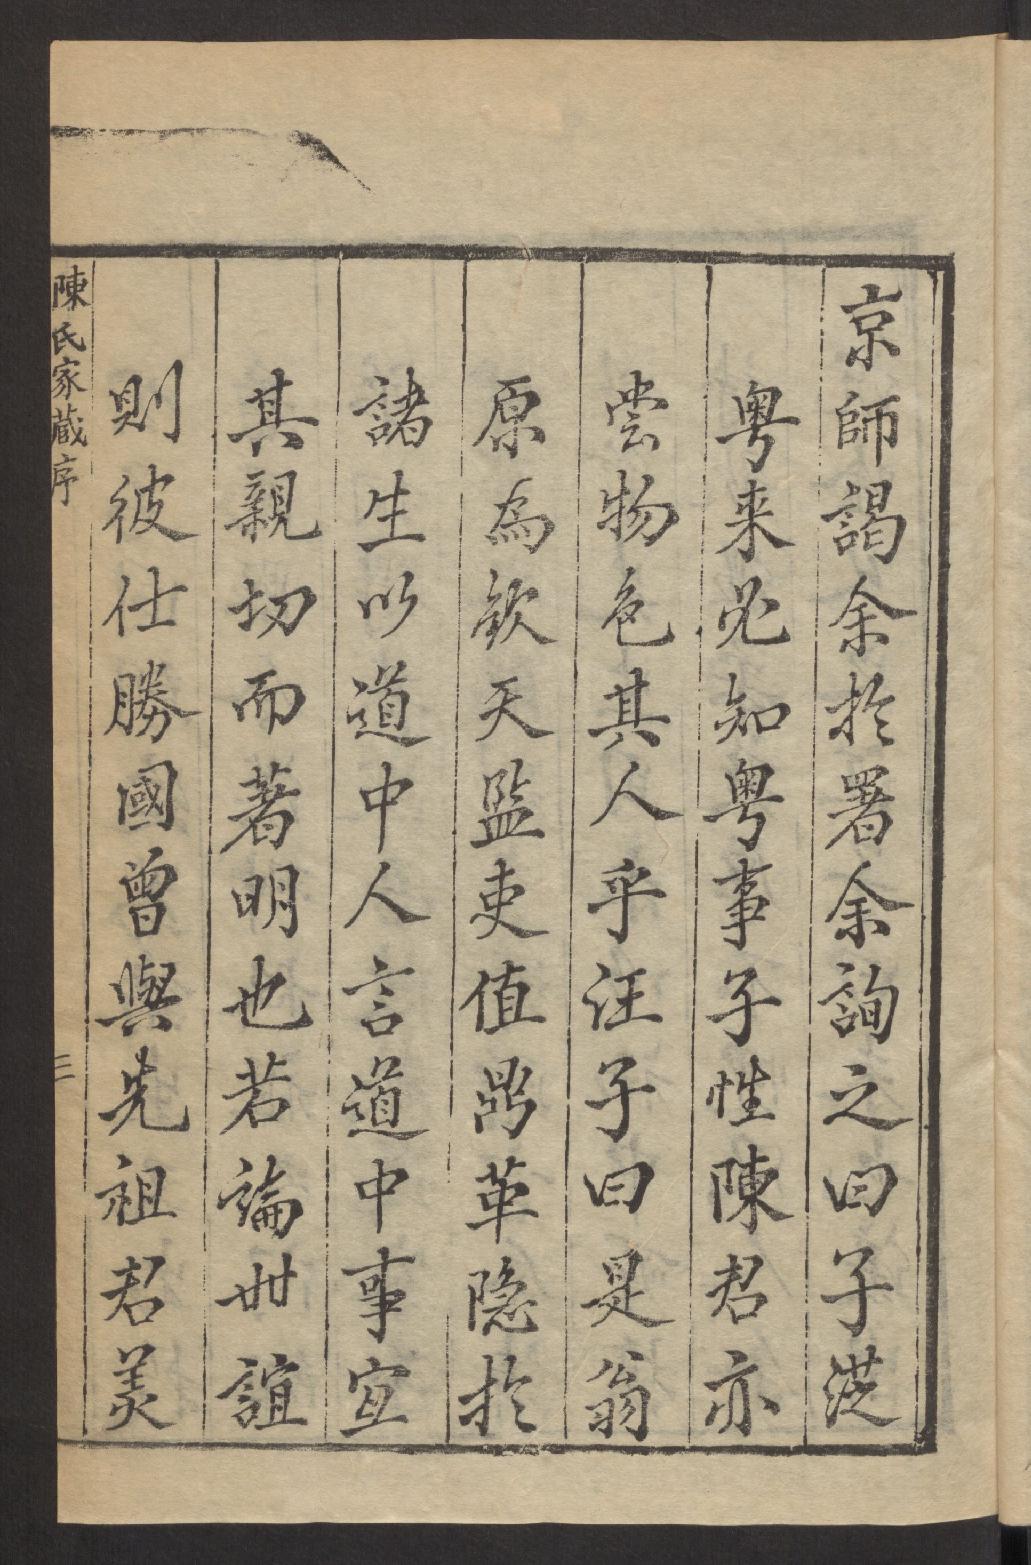 京師謁余於署余詢之曰子從
粤来必知粤事子性陳君亦
嘗物色其人乎汪子曰是翁
原為欽天監吏值鼎革隐於
諸生以道中人言道中事宜
其親切而著明也若論世誼
則彼仕勝國曾與先祖君美
陳氏家藏序
三